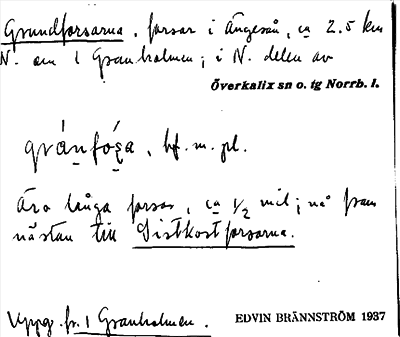 Grundforsarna, forsar i Ängesån, ca 2.5 km
N. om 1 Granholmen; i N. delen av
Överkalix sn o. tg Norrb. l.
bf. m. pl.
Äro långa forsar, ca 1/2 mil; nå fram
nästan till Sistkostforsarna.
Uppg. fr. 1 Granholmen.
EDVIN BRÄNNSTRÖM 1937